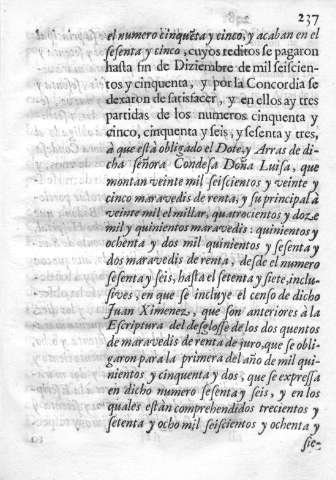 237
el numero cinquēta y cinco, y acaban en el
sesenta y cinco, cuyos reditos se pagaron
hasta fin de Diziembre de mil seiscien-
tos y cinquenta, y por la Concordia se
dexaron de satisfacer, y en ellos ay tres
partidas de los numeros cinquenta y
cinco, cinquenta y seis, y sesenta y tres,
à que està obligado el Dote, y Arras de di-
cha señora Condesa Doña Luisa, que
montan veinte mil seiscientos y veinte y
cinco maravedis de renta, y su principal à
veinte mil el millar, quatrocientos y doze
mil y quinientos maravedis: quinientos y
ochenta y dos mil quinientos y sesenta y
dos maravedis de renta, desde el numero
sesenta y seis, hasta el setenta y siete, inclu-
sives, en que se incluye el censo de dicho
Juan Ximenez, que son anteriores à la
Escriptura del desglosse de los dos quentos
de maravedis de renta de juro, que se obli-
garon para la primera del año de mil qui-
nientos y cinquenta y dos, que se expressa
en dicho numero sesenta y seis, y en los
quales estàn comprehendidos trecientos y
setenta y ocho mil seiscientos y ochenta y
sie-